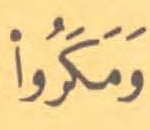 وَمَكَرُوا۟